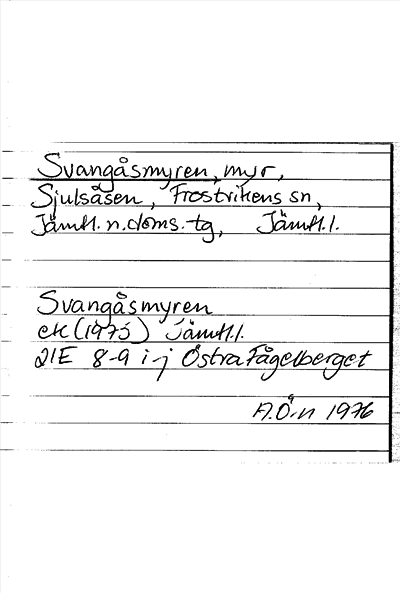 Svangåsmyren, myr,
Sjulsåsen, Frostvikens sn,
Jämtl. n. doms. tg, Jämtl. l.
Svangåsmyren
ek (1975) Jämtl. l.
21E 8-9 i-j Östra Fågelberget
A.Ö-n 1976